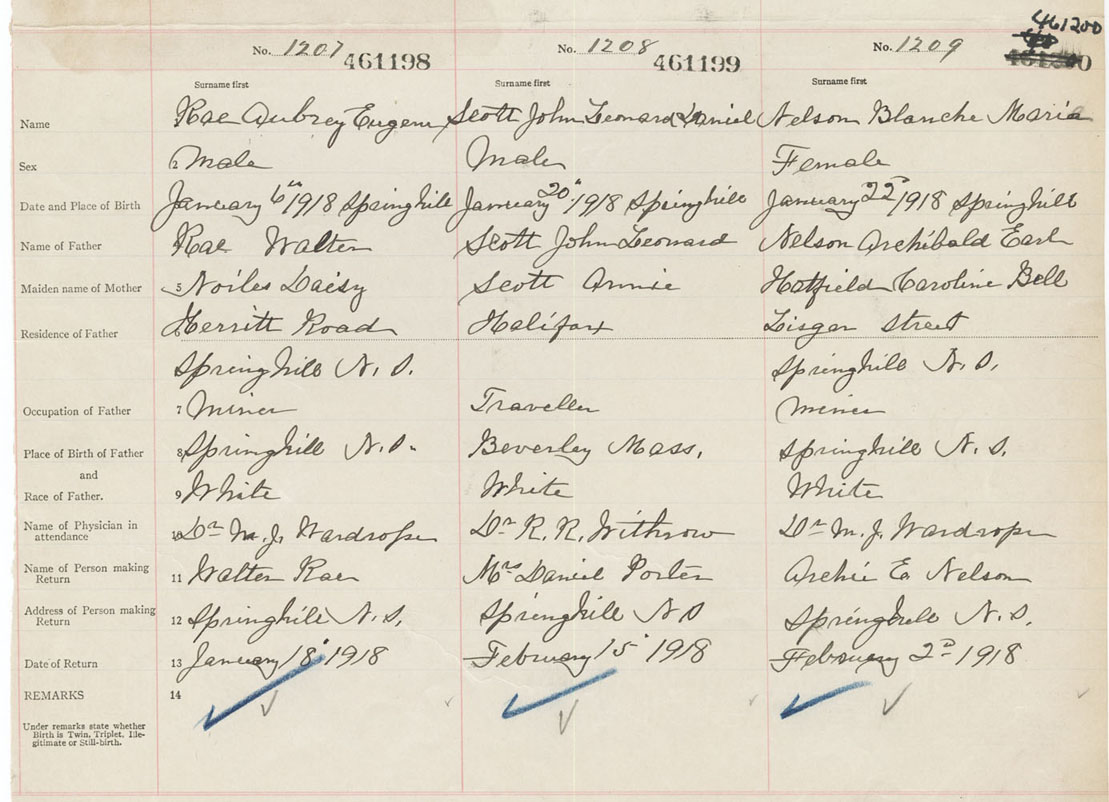 461200
No. 1207 461198 No. 1208 461199 No. 1209
Surname first Surname first Surname first
Name Rae Aubrey Eugene Scott John Leonard Daniel Nelson Blanche Maria
Sex 2 Male Male Female
Date and Place of Birth January 6th 1918 Springhill January 20th 1918 Springhill January 22nd 1918 Springhill
Name of Father Rae Walter Scott John Leonard Nelson Archibald Earl
Maiden name of Mother 5 Noiles Daisy Scott Annie Hatfield Caroline Bell
Residence of Father 6 Herritt Road Halifax Lisgar Street
Springhill N. S. Springhill N. S.
Occupation of Father 7 Miner Traveller Miner
Place of Birth of Father 8 Springhill N. S. Beverley Mass. Springhill N. S.
and
Race of Father. 9 White White White
Name of Physician in
attendance 10 Dr M. J. Wardrope Dr R. R. Withrow Dr M. J. Wardrope
Name of Person making
Return 11 Walter Rae Mrs Daniel Porter Archie E. Nelson
Address of Person making
Return 12 Springhill N. S. Springhill N S Springhill N. S.
Date of Return 13 January 18 1918 February 15 1918 February 2nd 1918
REMARKS 14
Under remarks state whether
Birth is Twin, Triplet, Ille-
gitimate or Still-birth.